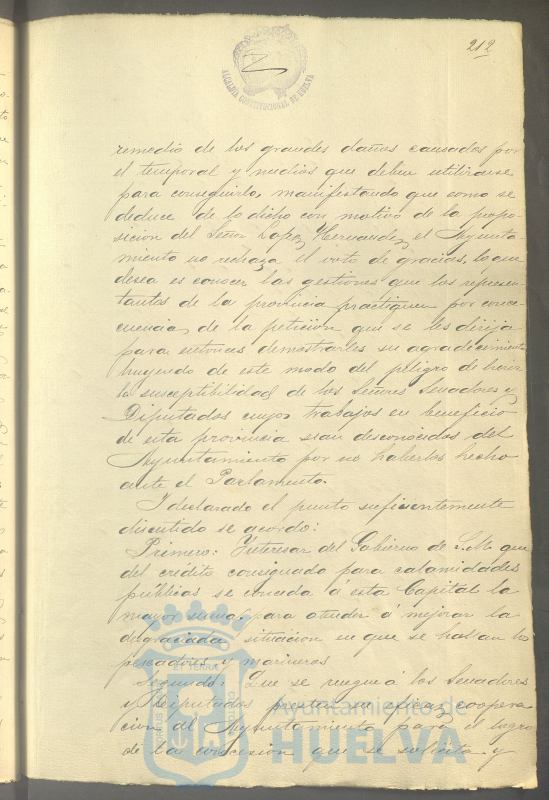 212
ALCALDIA CONSTITUCIONAL DE HUELVA
remedio de los grandes daños causados por
el temporal y medios que deben utilizarse
para conseguirlo, manifestando que como se
deduce de lo dicho con motivo de la propo-
sicion del Señor Lopez Hernandez el Ayunta-
miento no rechaza el voto de gracias, lo que
desea es conocer las gestiones que los represen-
tantes de la provincia practiquen por conse-
cuencia de la peticion que se les dirija
para entonces demostrarles su agradecimiento
huyendo de este modo del peligro de herir
la susceptibilidad de los Señores Senadores y
Diputados cuyos trabajos en beneficio
de esta provincia sean desconocidos del
Ayuntamiento por no haberlos hecho
ante el Parlamento.
I declarado el punto suficientemente
discutido se acordo:
Primero: Interesar del Gobierno de S.M. que
del crédito consignado para calamidades
públicas se conceda á esta Capital la
mayor suma para atender á mejorar la
desgraciada situacion en que se hallan los
pescadores y marineros
Segundo: Que se ruegue á los Senadores
y Diputados presten su eficaz coopera-
cion al Ayuntamiento para el logro
de la concesion que se solicita y
Ayuntamiento de
HUELVA